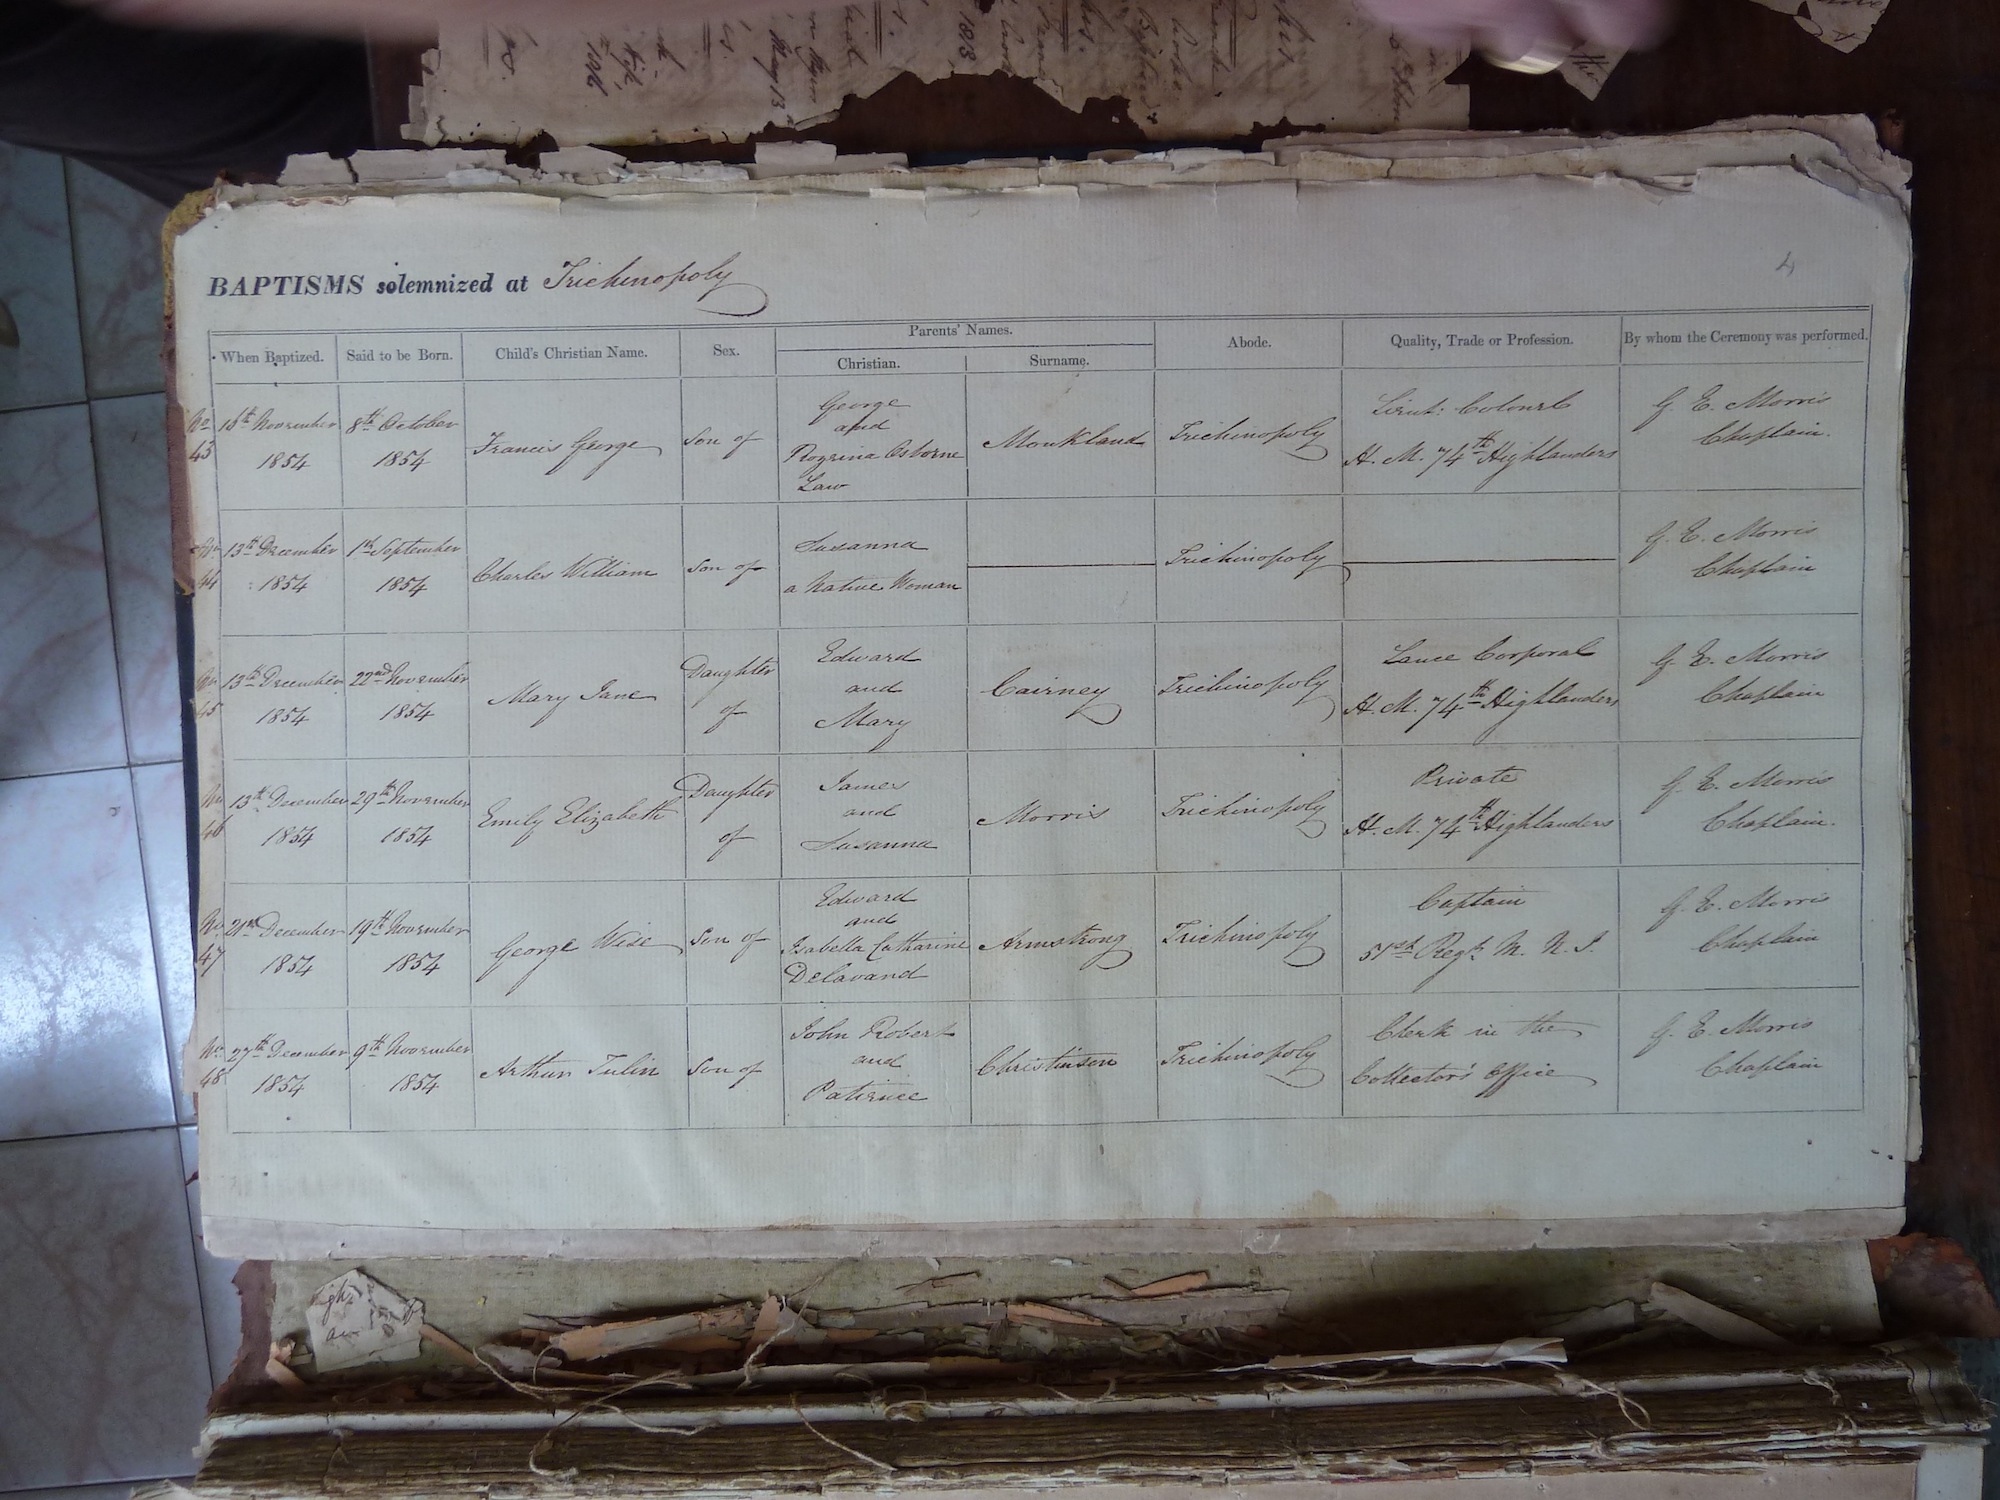 4
BAPTISMS solemnized at Trichinopoly
When Baptized.
Said to be Born.
Child's Christian Name.
Sex.
Parents' Names.
Christian.
Surname.
Abode.
Quality, Trade or Profession.
By whom the Ceremony was performed.
No 43
November 1854
8th October 1854
Francis George
Son of
George
and
Osborne
Law
Monkland
Trichinopoly
Lieut: Colonel
H. M. 74th Highlanders
G. E. Morris
Chaplain.
No 44
13th December 1854
1st September 1854
Charles William
Son of
Susanna
a Native Woman
Trichinopoly
G. E. Morris
Chaplain
No 45
13th December 1854
22nd November 1854
Mary Jane
Daughter
of
Edward
and
Mary
Cairney
Trichinopoly
Lance Corporal
H. M. 74th Highlanders
G. E. Morris
Chaplain
No 46
13th December 1854
29th November 1854
Emily Elizabeth
Daughter
of
James
and
Susanna
Morris
Trichinopoly
Private
H. M. 74th Highlanders
G. E. Morris
Chaplain.
No 47
21st December 1854
19th November 1854
George Wise
Son of
Edward
and
Isabella Catharine
Delavand
Armstrong
Trichinopoly
Captain
51st Regt. M. N. I.
G. E. Morris
Chaplain
No 48
27th December 1854
9th November 1854
Arthur Tulin
Son of
John Robert
and
Patience
Christinson
Trichinopoly
Clerk in the
Collector's Office
G. E. Morris
Chaplain